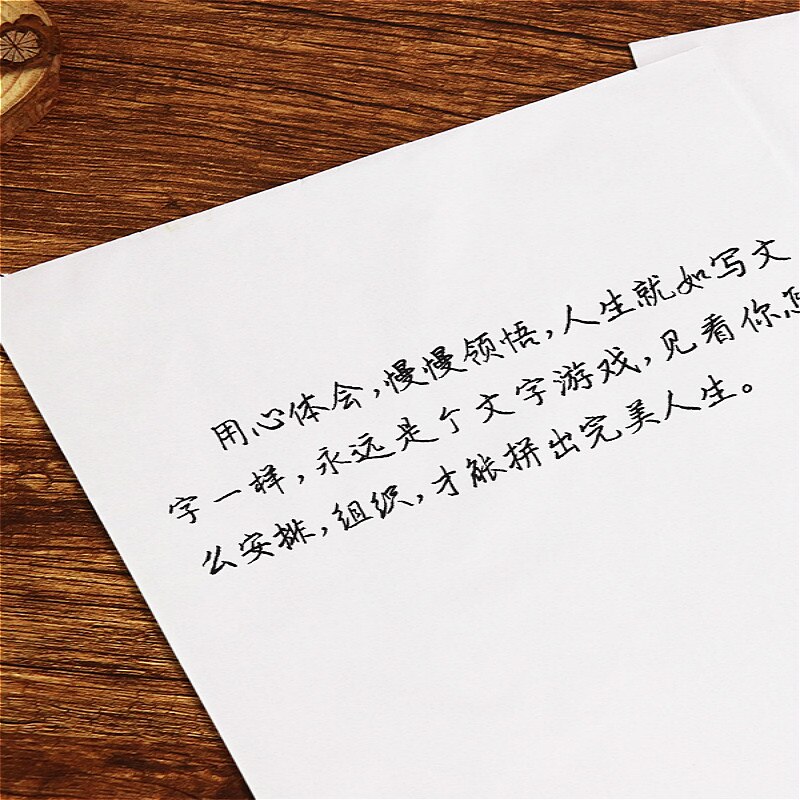 用心体会,慢慢领悟,人生就如写文
字一样,永远是个文字游戏,见看你怎
么安排,组织,才能拼出完美人生。